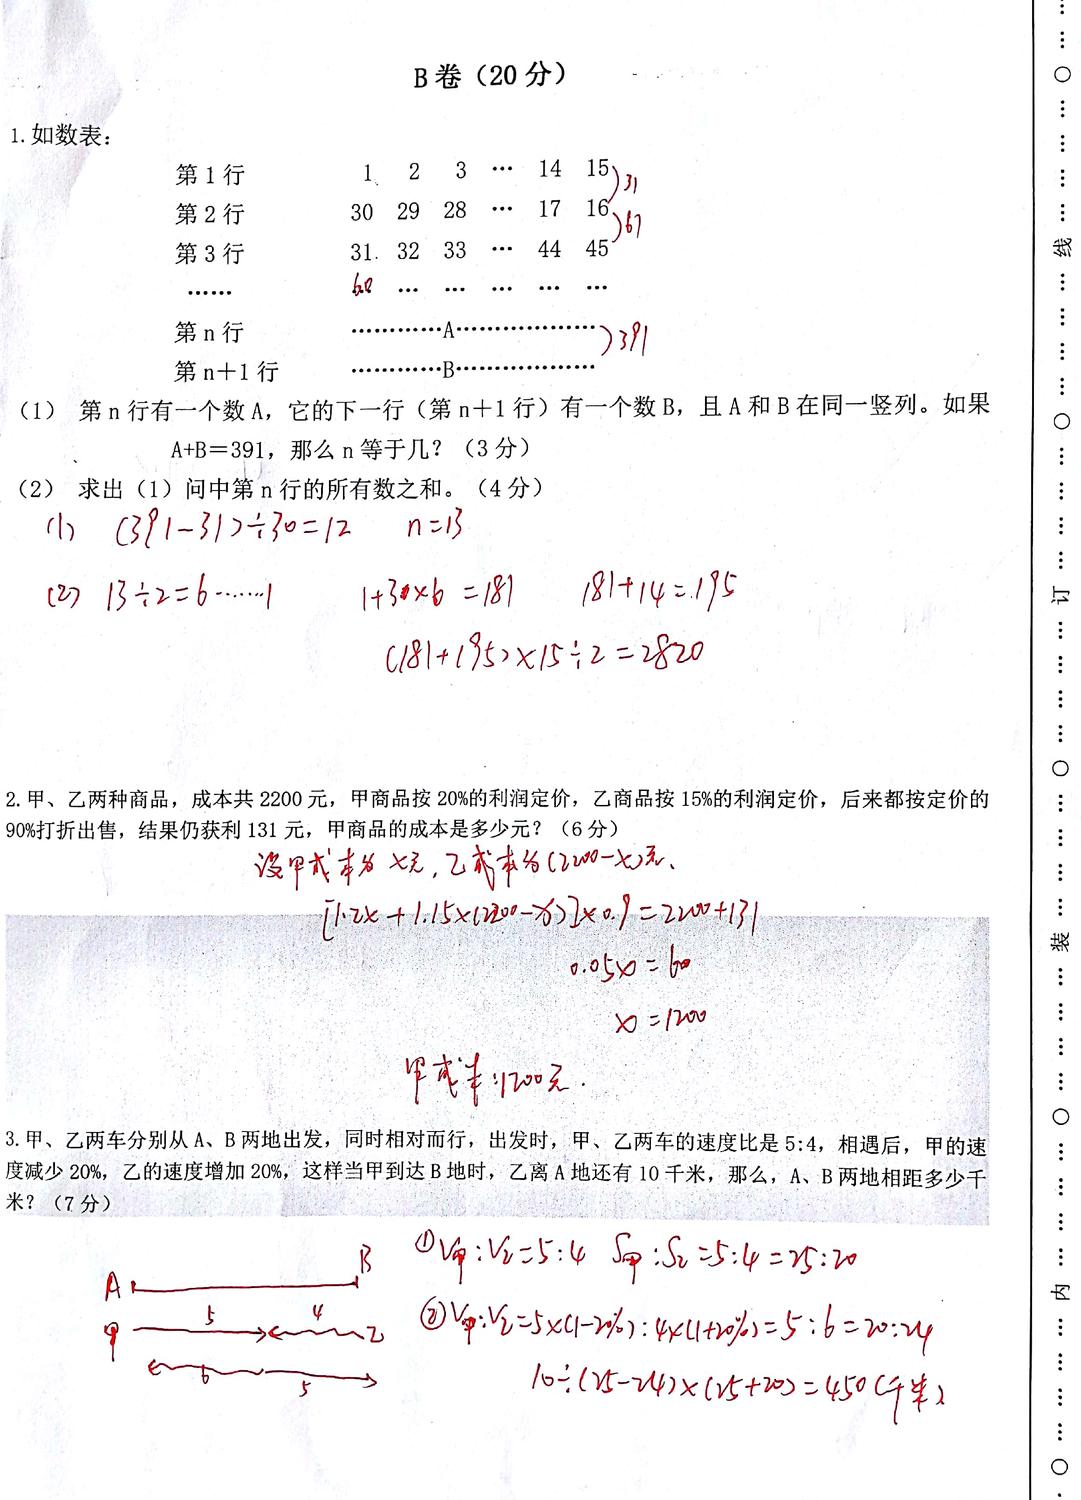 B卷（20分）
1.如数表：
第1行 1 2 3 … 14 15 31
第2行 30 29 28 … 17 16 61
第3行 31 32 33 … 44 45
…… 60 … … … … …
第n行 …………A……………… 391
第n＋1行 …………B………………
（1） 第n行有一个数A，它的下一行（第n＋1行）有一个数B，且A和B在同一竖列。如果
A+B＝391，那么n等于几？（3分）
（2） 求出（1）问中第n行的所有数之和。（4分）
(1) (391-31)÷30=12 n=13
(2) 13÷2=6……1 1+30×6=181 181+14=195
(181+195)×15÷2=2820
2.甲、乙两种商品，成本共2200元，甲商品按20%的利润定价，乙商品按15%的利润定价，后来都按定价的
90%打折出售，结果仍获利131元，甲商品的成本是多少元？（6分）
设甲成本为x元，乙成本为(2200-x)元、
[1.2x+1.15×(2200-x)]×0.9=2200+131
0.05x=60
x=1200
甲成本:1200元.
3.甲、乙两车分别从A、B两地出发，同时相对而行，出发时，甲、乙两车的速度比是5:4，相遇后，甲的速
度减少20%，乙的速度增加20%，这样当甲到达B地时，乙离A地还有10千米，那么，A、B两地相距多少千
米？（7分）
①V甲:V乙=5:4 S甲:S乙=5:4=25:20
A B
5 4
甲 乙
②V甲:V乙=5×(1-20%):4×(1+20%)=5:6=20:24
6 5
10÷(25-24)×(25+20)=450(千米)
线
订
装
内